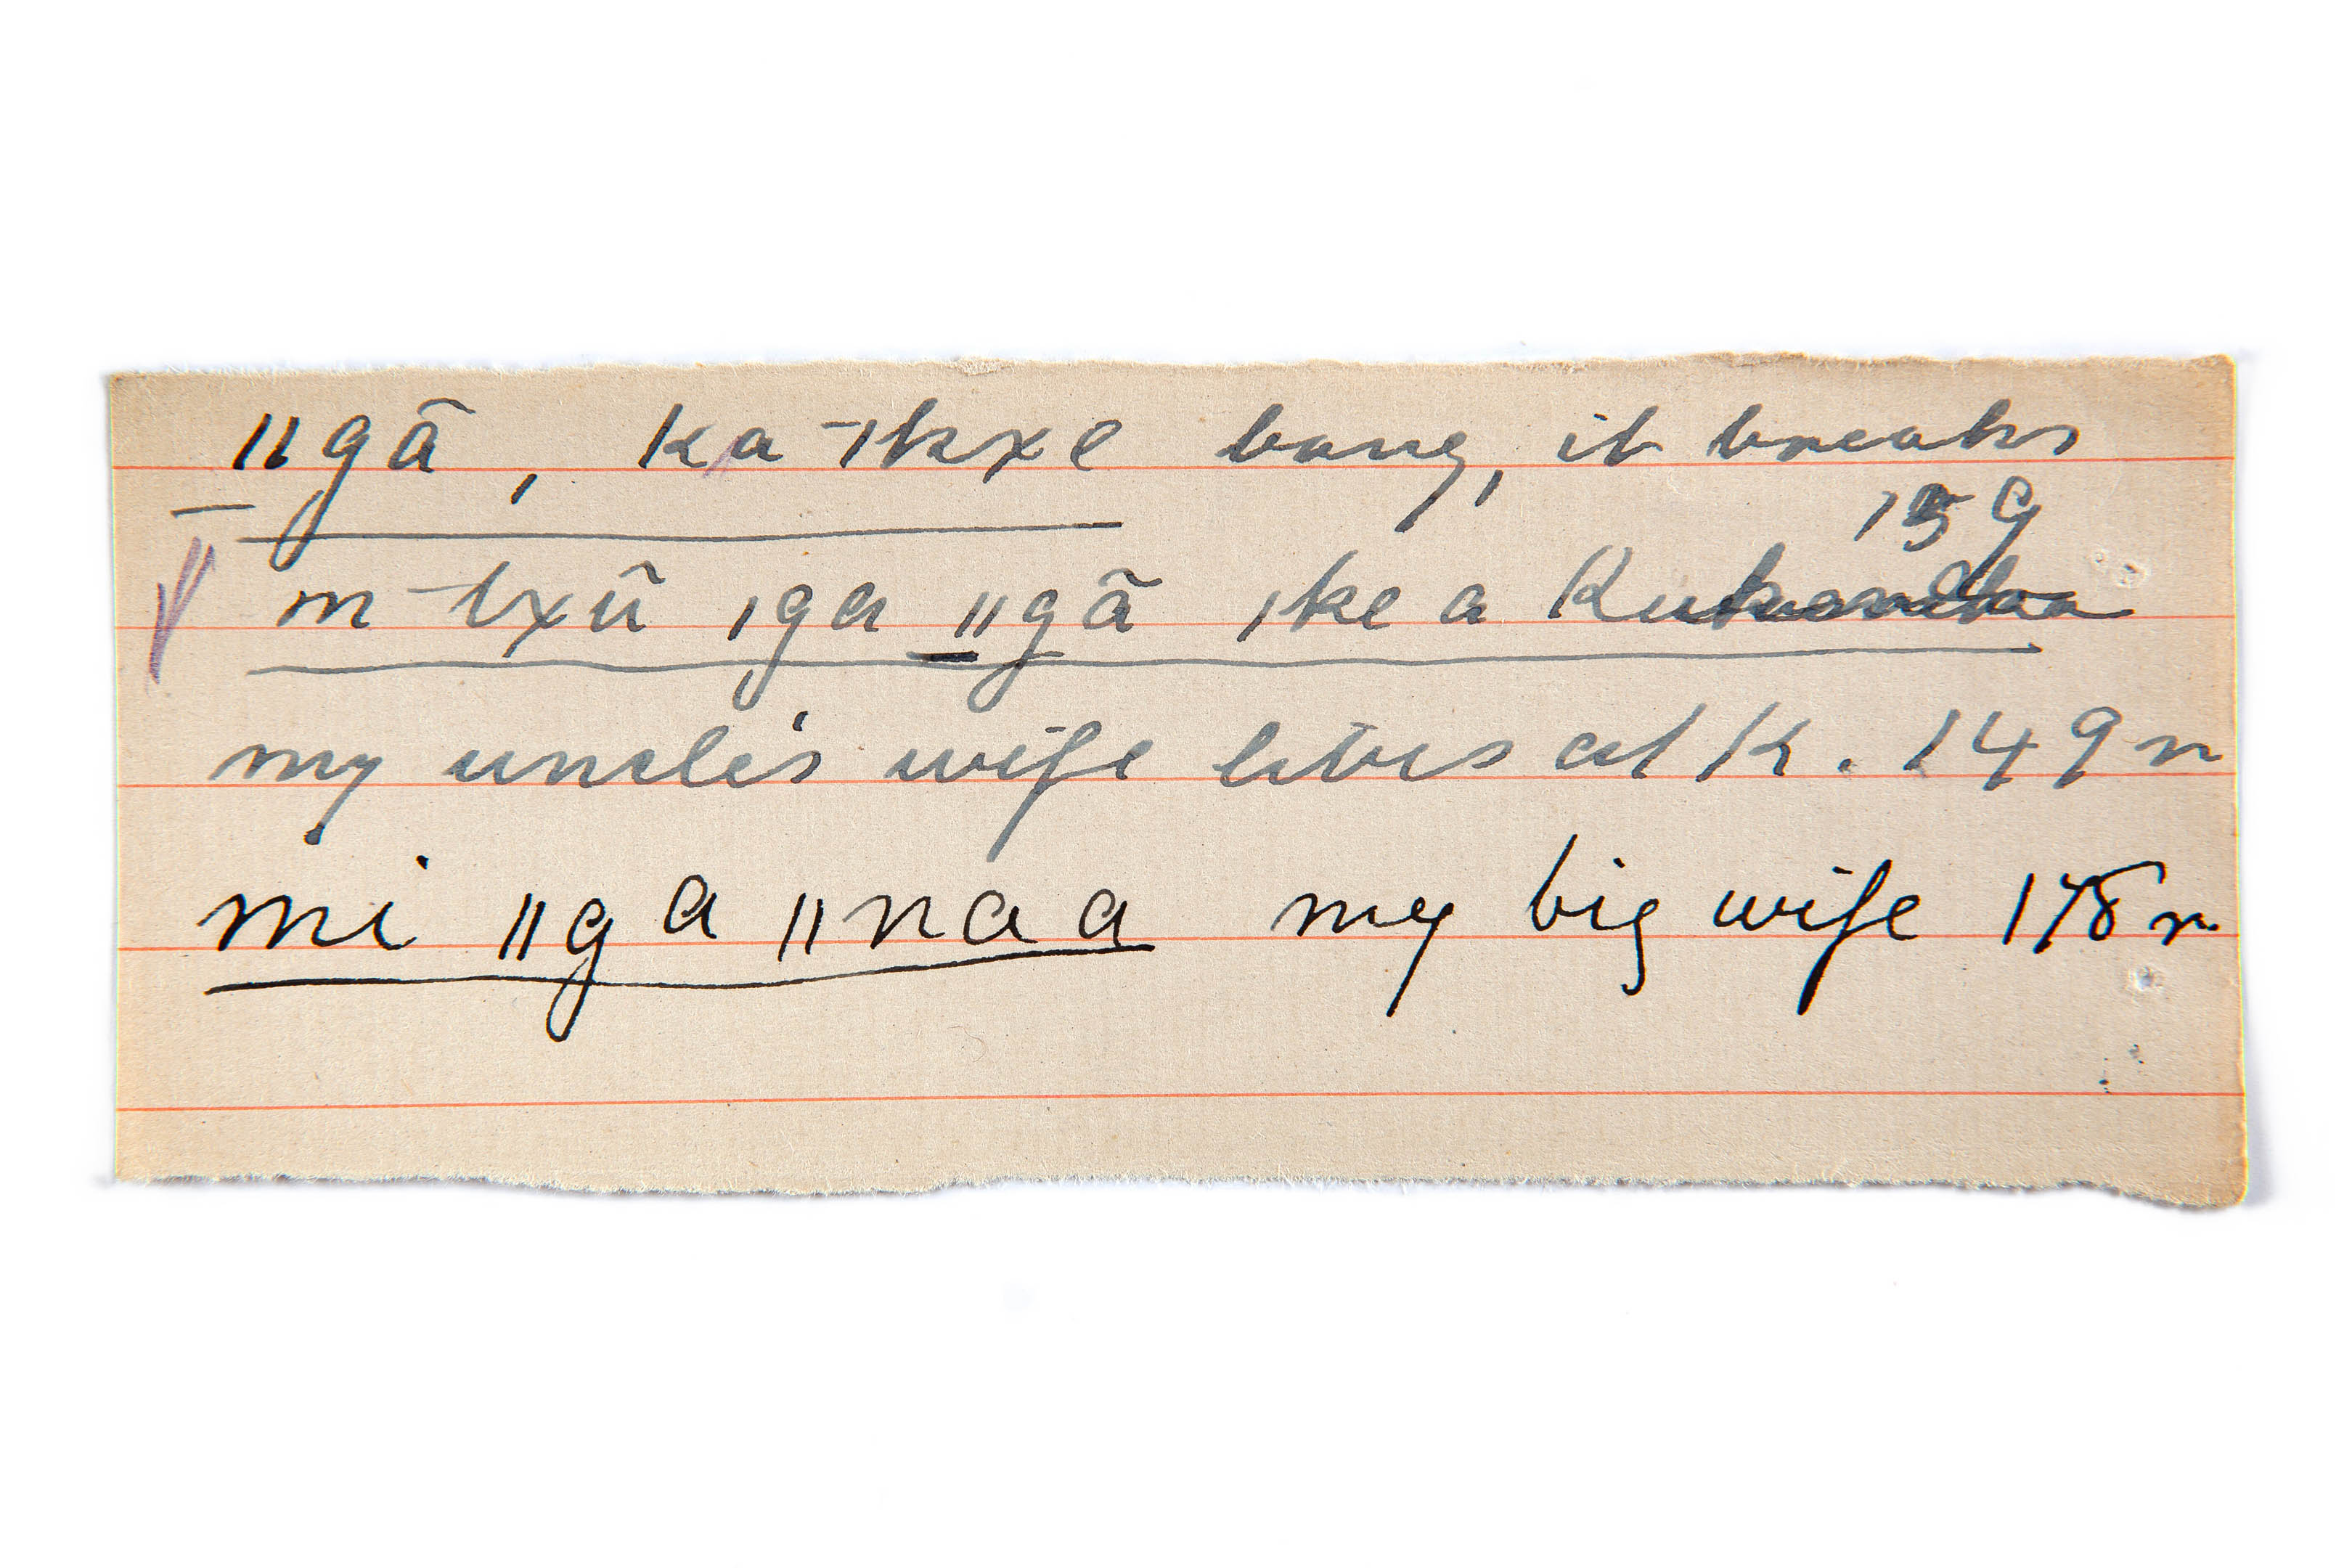 ǁgā, ka -ǀkxe bang, it breaks
159
m -txũ ǀga ǁgā ǀke a
my uncle's wife lives at K. 149 n
mi ǁga ǁnaa my big wife 178 n